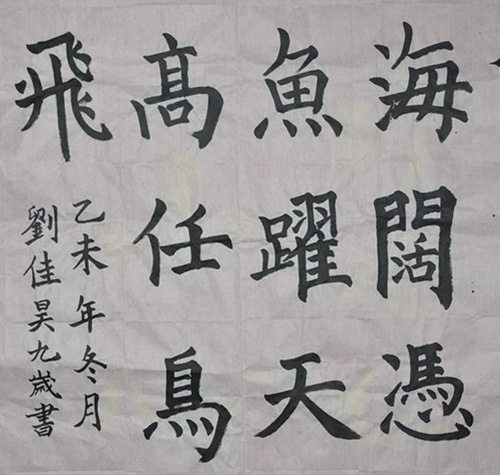 海闊憑
魚躍天
髙任鳥
飛
乙未年冬月
劉佳昊九歲書